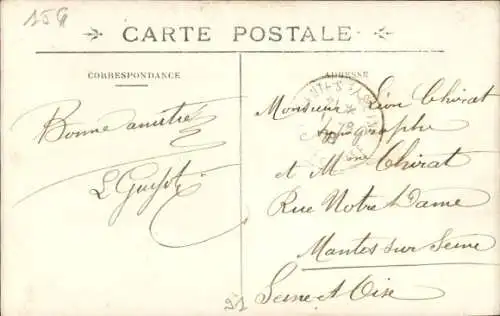 15G
CARTE POSTALE
CORRESPONDANCE
ADRESSE
Bonne amitié
L Guyot
Monsieur Léon Chirat
Typographe
et Mme Chirat
Rue Notre Dame
Mantes sur Seine
Seine et Oise